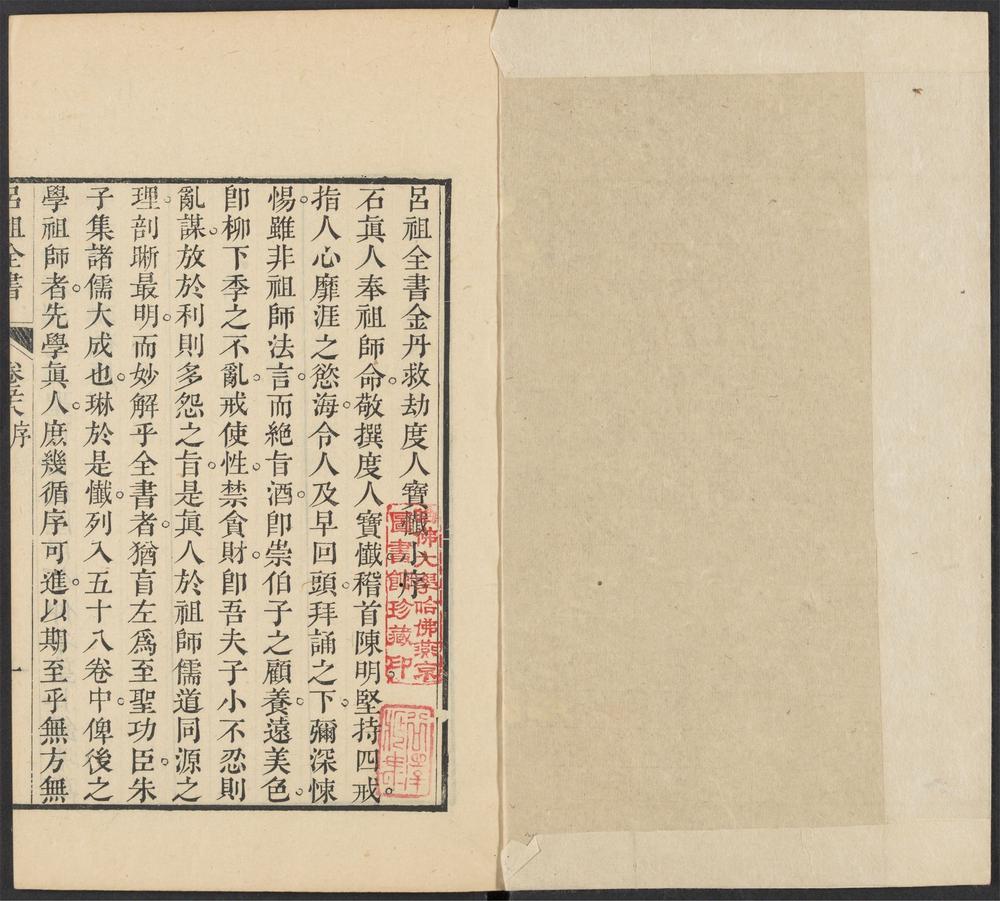 呂祖全書金丹救劫度人寶懺小序
石眞人奉祖師命。敬撰度人寶懺。稽首陳明。堅持四戒。
指人心靡涯之慾海。令人及早回頭。拜誦之下。彌深悚
惕。雖非祖師法言。而絕旨酒。卽崇伯子之顧養。遠美色。
卽柳下季之不亂。戒使性。禁貪財。卽吾夫子小不忍則
亂謀。放於利則多怨之旨。是眞人於祖師儒道同源之
理。剖晰最明。而妙解乎全書者。猶盲左爲至聖功臣。朱
子集諸儒大成也。琳於是懺。列入五十八卷中。俾後之
學祖師者。先學眞人。庶幾循序可進。以期至乎無方無
呂祖全書
序
一
哈佛大學哈佛燕京
圖書館珍藏印